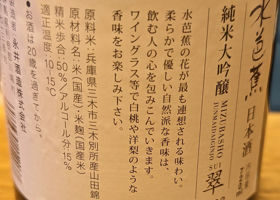 水芭蕉
日本酒
純米大吟醸
MIZUBASHO
JUNMAIDAIGINJO
SUI
翠
水芭蕉の花が最も連想される味わい、
柔らかで優しい自然派な香味は、
飲む人の心を包みこんでいきます。
ワイングラス等で白桃や洋梨のような
香味をお楽しみ下さい。
原料米：兵庫県三木市三木別所産山田錦
原材料名：米（国産）・米麹（国産米）
精米歩合：50％／アルコール分：15％
適正温度：10-15℃
●お酒は20歳を過ぎてから。
永井酒造株式会社